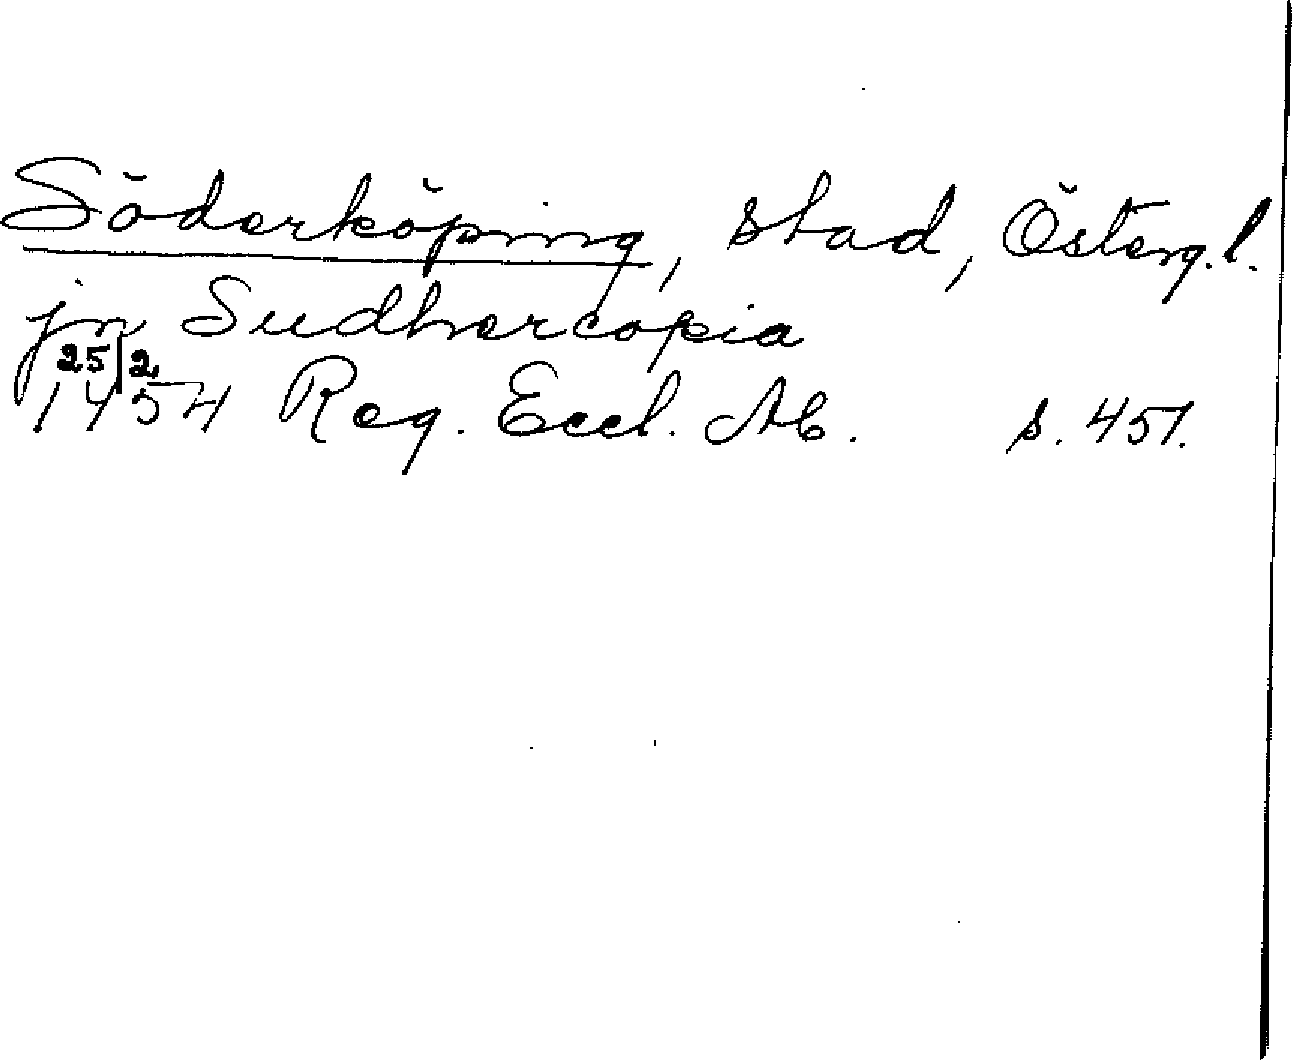 Söderköping, stad, Österg.l.
jn Sudhercopia
25/2
1454 Reg. Eccl. Ab. s. 451.